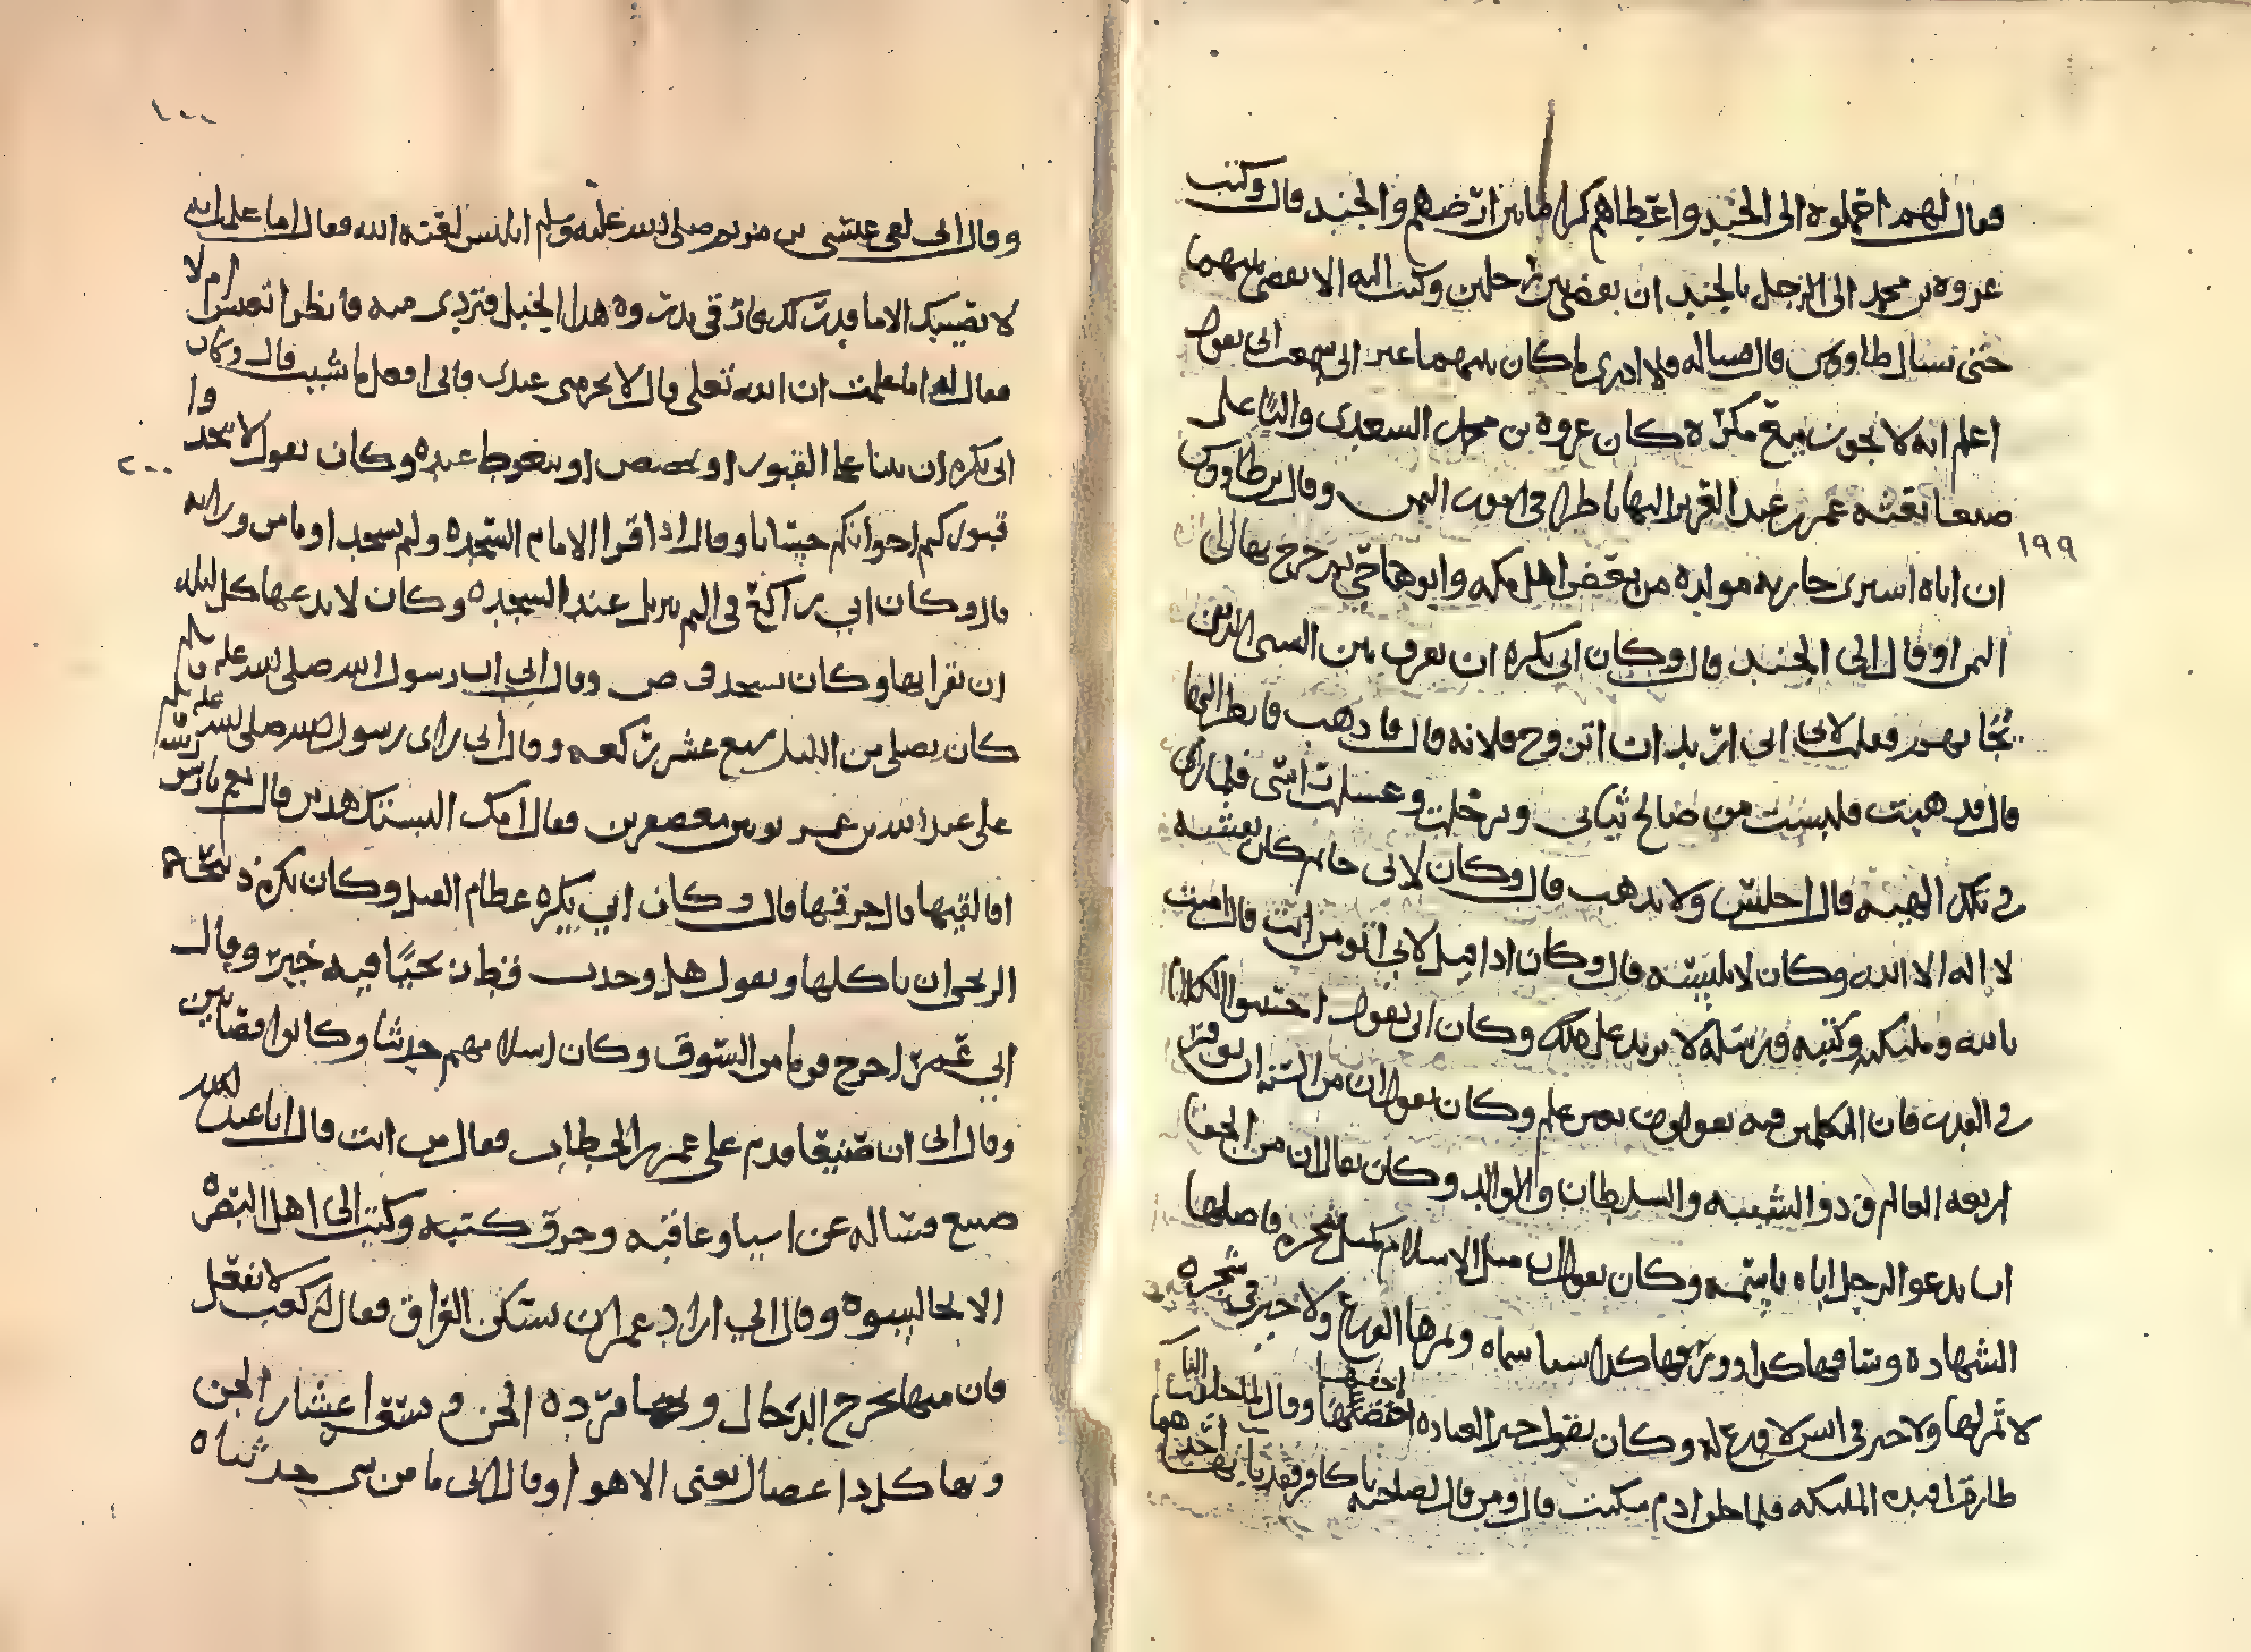 فقال لهم احملوه الى الجند واعطاهم كرا ما بين ارضهم والجند قال وكتب
عروه بن محمد الى الرجل بالجند ان يقضي بين رجلين وكتب اليه الا يقضي بينهما
حتى نسال طاووس قال فساله فلا ادري ما كان بينهما غير اني سمعت ابي يقول
اعلم انه لا يجوز بيع مكره كان عروه بن محمد السعدي واليا على
صنعا بعثه عمر بن عبد العزيز اليها وقال بن طاووس
١٩٩
ان اباه اسرى جاريه مولده من بعض اهل مكه وابوها حي يريد خرج بها الى
اليمن او قال الى الجند قال وكان ابي يكره ان يفرق بين السبي الذين
يجا بهم فقلت لابي اني اريد ان اتزوج فلانه قال فاذهب فانظر اليها
قال فذهبت فلبست من صالح ثيابي ودخلت وغسلت راسي فلما راى
في تلك الهيئه قال اجلس ولا تذهب قال وكان لابي خاتم كان نقشه
لا اله الا الله وكان لا يلبسه قال وكان اذا قيل لابي امومن انت قال امنت
بالله وملئكته وكتبه ورسله لا يزيد على ذلك وكان ابي يقول احتنبوا الكلام
في القدر فان المتكلمين فيه يقولون بغير علم وكان يقول ان من السنه ان يوقر
اربعه العالم وذو الشيبه والسلطان والوالد وكان يقال ان من الجفا
ان يدعو الرجل اباه باسمه وكان يقول ان مثل الاسلام كمثل شجره فاصلها
الشهاده وساقها كذا وورقها كذا شيا سماه وثمرها الورع ولا خير في شجره
لا ثمر لها ولا خير في انسان لا ورع له وكان يقول خير العباده اخفها وقال لما خلقت النار
طارت افئده الملئكه فلما خلق ادم سكنت قال ومن قال لصاحبه يا كافر فقد باء بها احدهما
١٠٠
وقال ابي لقي عيسى بن مريم صلى الله عليه وسلم ابليس لعنه الله فقال اما علمت انه
لا يصيبك الا ما قدر لك قال فارق بذروه هذا الجبل فتردى منه فانظر اتعيش ام لا
فقال له اما علمت ان الله تعلى قال لا يجربني عبدي فاني افعل ما شيت قال وكان
ابي يكره ان يبنا على القبور او يجصص او يتغوط عنده وكان يقول لا تتخذوا
٢٠٠
قبوركم اخوانكم حشانا وقال اذا قرا الامام السجده ولم يسجد اوما من وراءه
قال وكان ابي يركع في الم تنزيل عند السجده وكان لا يدعها كل ليله
ان يقرا بها وكان يسجد في ص وقال ابي ان رسول الله صلى الله عليه وسلم
كان يصلي من الليل سبع عشر ركعه وقال ابي راى رسول الله صلى الله عليه وسلم
على عبد الله بن عمر ثوبين معصفرين فقال امك البستك هذين قال نعم يا رسول الله
افالقيها قال حرقها قال وكان ابي يكره عظام الفيل وكان يكره ذبيحه
الزنجي ان ياكلها ويقول هل وجدت قط زنجيا فيه خير وقال
ابي عمر اخرج قوما من السوق وكان اسلامهم حديثا وكانوا قصابين
وقال ابي ان صبيغا قدم على عمر بن الخطاب فقال من انت قال انا عبد الله
صبيغ فساله عن اشيا وعاقبه وحرق كتبه وكتب الى اهل البصره
الا تجالسوه وقال ابي اراد عمر ان يسكن العراق فقال له كعب لا تفعل
فان منها يخرج الدجال وبها مرده الجن وتسعه اعشار الجن
وبها كل داء عضال يعني الاهوا وقال ابي ما من شي حدثناه